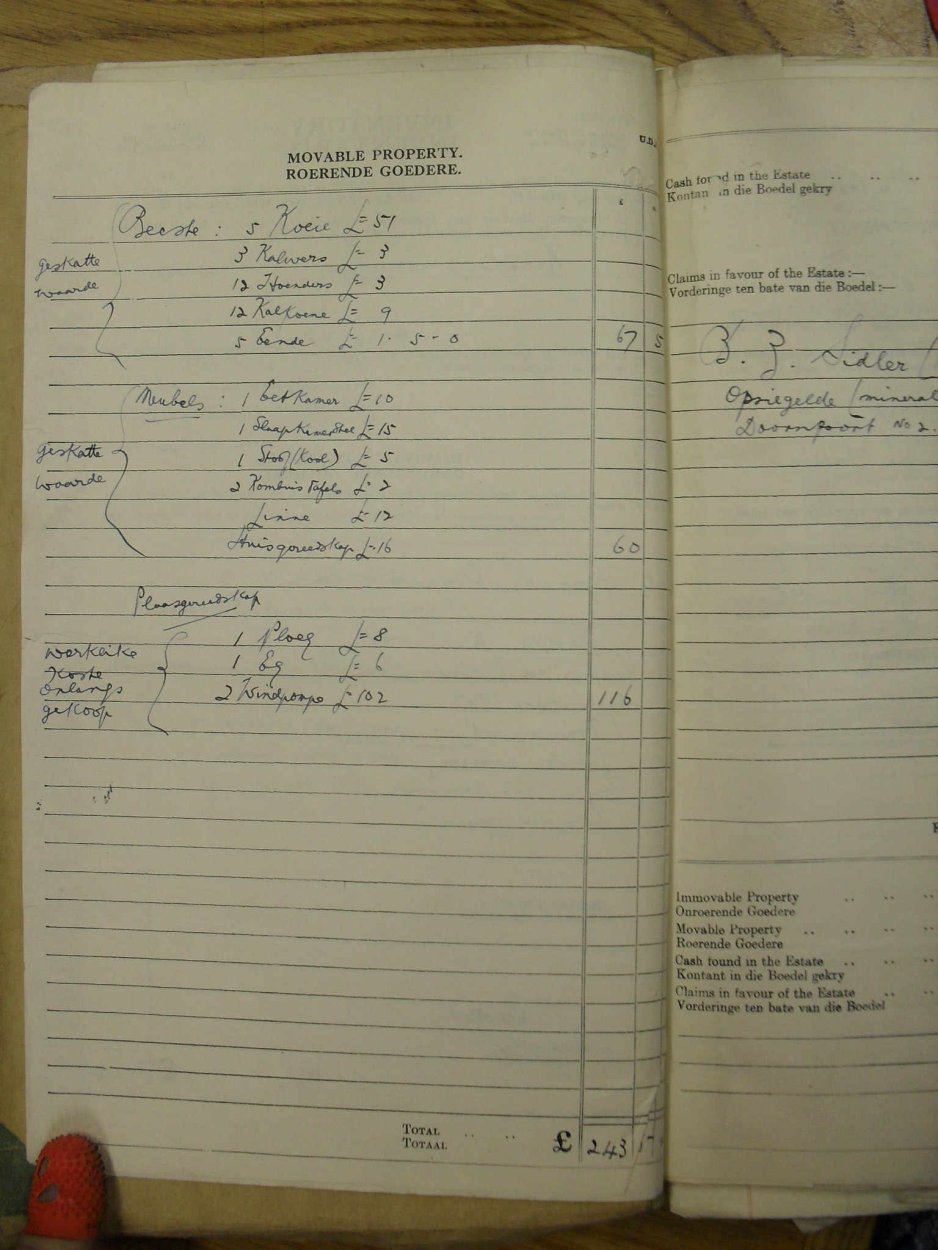 U.D.
MOVABLE PROPERTY.
ROERENDE GOEDERE.
£
Beeste : 5 Koeie £= 51
geskatte
waarde
3 Kalwers £= 3
12 Hoenders £= 3
12 Kalkoene £= 9
5 Eende £ 1 - 5 - 0 67 5
Meubels : 1 Eetkamer £= 10
1 Slaapkamerstel £= 15
geskatte
waarde
1 Stoof (Kool) £= 5
2 Kombuis tafels £= 2
Linne £= 12
Huisgereedskap £=16 60
Plaasgereedskap
werklike
koste
onlangs
gekoop
1 Ploeg £= 8
1 Eg £= 6
2 Windpompe £= 102 116
TOTAL .. ..
TOTAAL
£ 243
Cash found in the Estate .. .. ..
Kontan in die Boedel gekry
Claims in favour of the Estate :—
Vorderinge ten bate van die Boedel :—
B. Z. Sidler
Opsiegelde (mineral
Doornpoort No 2.
Immovable Property .. .. ..
Onroerende Goedere
Movable Property .. .. .. ..
Roerende Goedere
Cash found in the Estate .. .. ..
Kontant in die Boedel gekry
Claims in favour of the Estate .. ..
Vorderinge ten bate van die Boedel